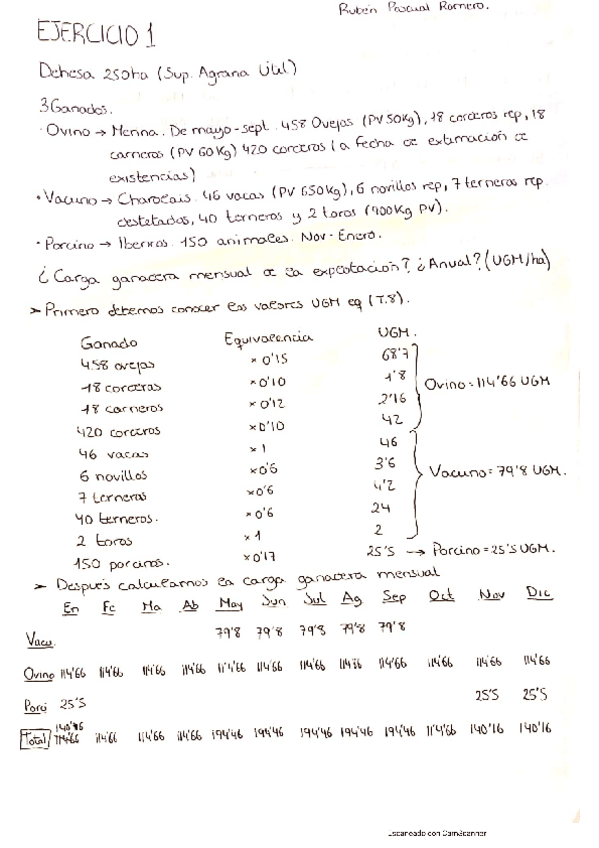 Rubén Pascual Romero.
EJERCICIO 1
Dehesa 250ha (Sup. Agraria Útil)
3 Ganados.
· Ovino → Merina. De mayo-sept. 458 Ovejas (PV 50Kg), 18 corderos rep, 18
carneros (PV 60Kg) 420 corderos (a fecha de estimación de
existencias)
· Vacuno → Charolais. 46 vacas (PV 650Kg), 6 novillos rep, 7 terneros rep.
destetados, 40 terneros y 2 toros (700Kg PV).
· Porcino → Ibericos. 150 animales. Nov-Enero.
¿Carga ganadera mensual de la explotación? ¿Anual? (UGM/ha)
➤ Primero debemos conocer los valores UGM eq (T.8).
Ganado Equivalencia UGM.
458 ovejas × 0'15 68'7
18 corderas × 0'10 1'8
18 carneros × 0'12 2'16
420 corderos × 0'10 42
Ovino = 114'66 UGM
46 vacas × 1 46
6 novillos × 0'6 3'6
7 terneras × 0'6 4'2
40 terneros. × 0'6 24
2 toros × 1 2
Vacuno = 79'8 UGM.
150 porcinos. × 0'17 25'5 → Porcino = 25'5 UGM.
➤ Después calculamos la carga ganadera mensual
En Fe Ma Ab May Jun Jul Ag Sep Oct Nov Dic
Vacu. 79'8 79'8 79'8 79'8 79'8
Ovino 114'66 114'66 114'66 114'66 114'66 114'66 114'66 114'66 114'66 114'66 114'66 114'66
Porci 25'5 25'5 25'5
Total 140'16 114'66 114'66 114'66 194'46 194'46 194'46 194'46 194'46 114'66 140'16 140'16
Escaneado con CamScanner